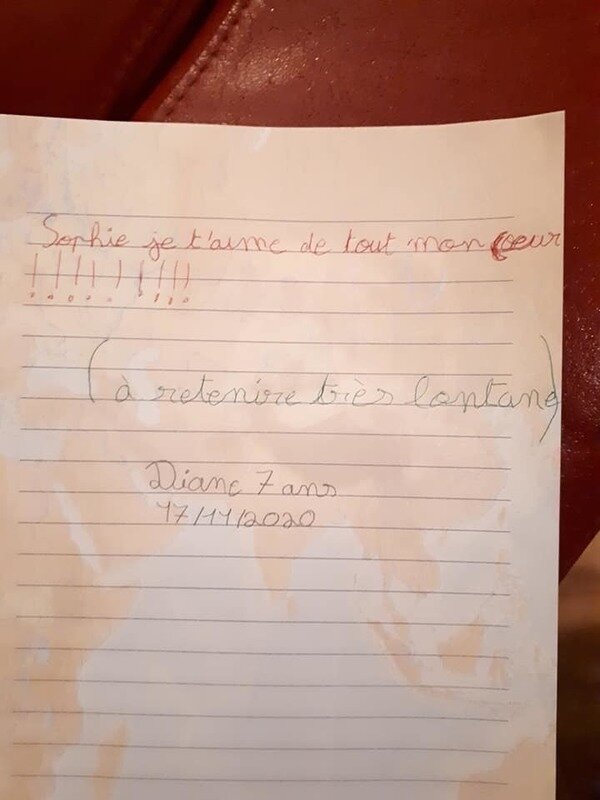 Sophie je t'aime de tout mon coeur
!!!!!!!!!!
(à retenire très lontane)
Diane 7 ans
17/11/2020